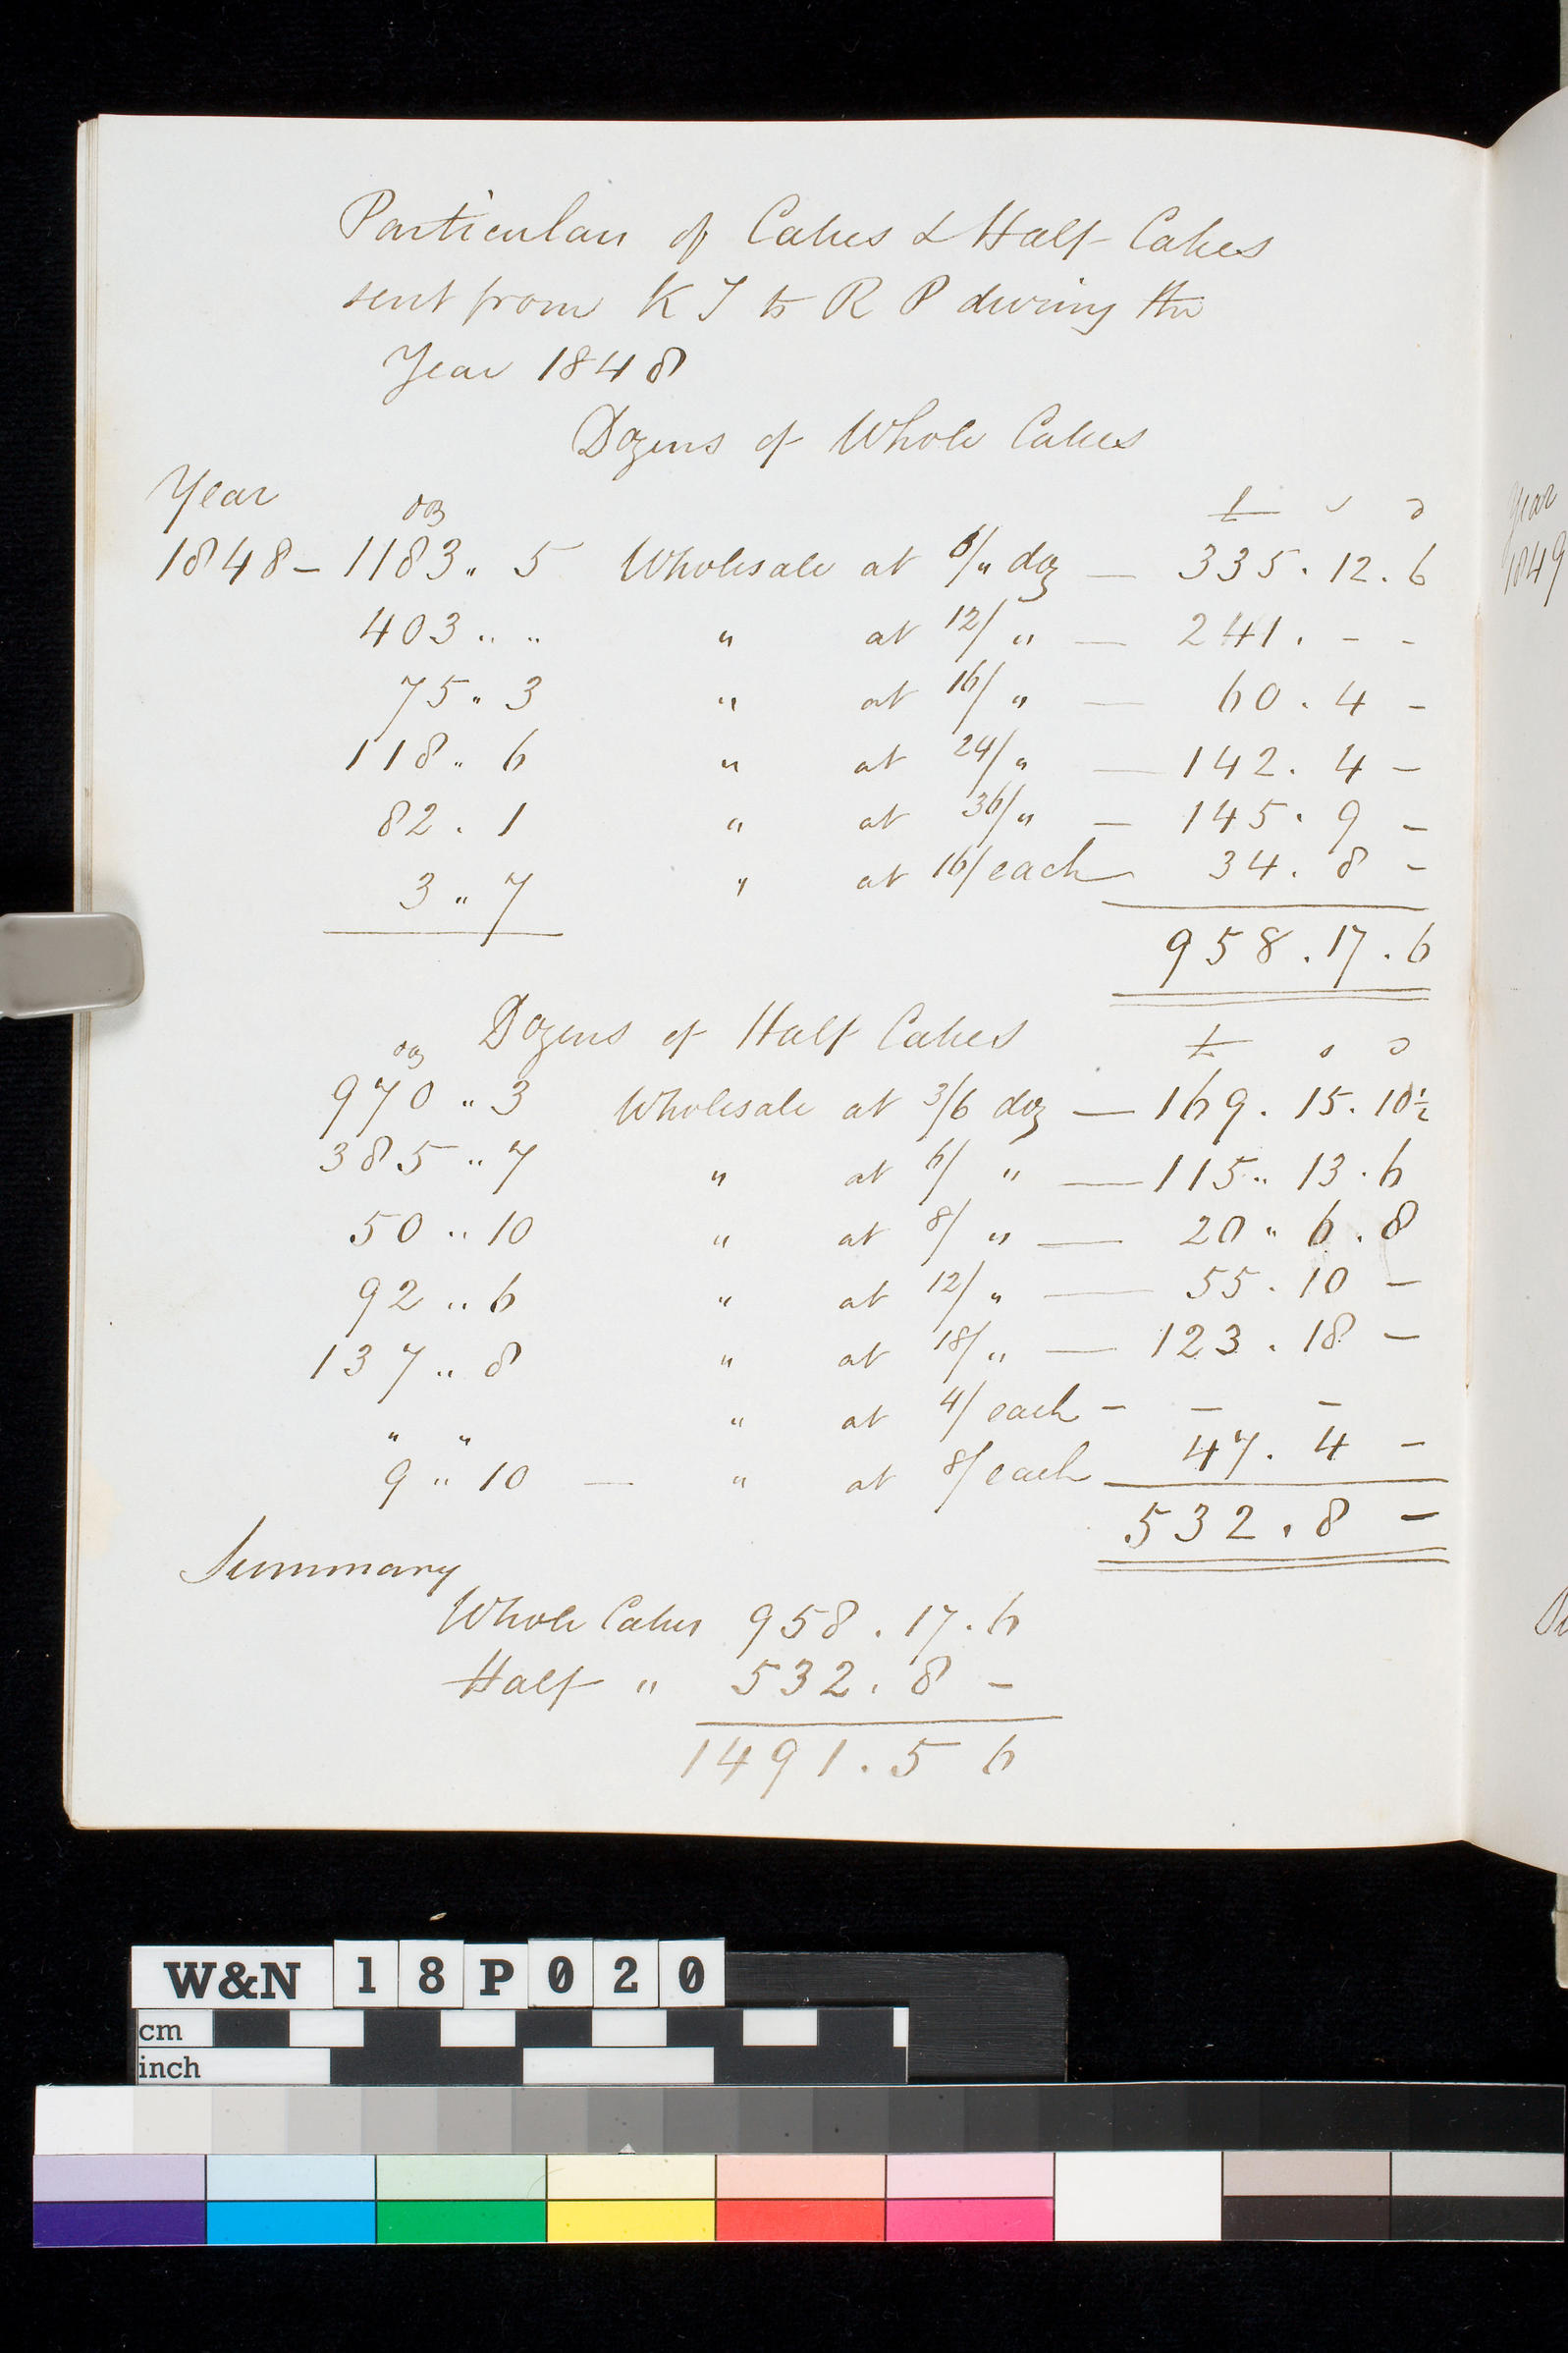 Particulars of Cakes & Half Cakes
sent from K T to R P during the
Year 1848
Dozens of Whole Cakes
Year doz £ s d
1848 – 1183 " 5 Wholesale at 6/" doz — 335 . 12 . 6
403 " " " at 12/ " — 241 . - -
75 " 3 " at 16/ " — 60 . 4 -
118 " 6 " at 24/ " — 142 . 4 -
82 . 1 " at 36/ " — 145 . 9 -
3 " 7 " at 16/ each 34 . 8 -
958 . 17 . 6
Dozens of Half Cakes
doz £ s d
970 " 3 Wholesale at 3/6 doz — 169 . 15 . 10½
385 " 7 " at 6/ " — 115 " 13 . 6
50 " 10 " at 8/ " — 20 " 6 . 8
92 " 6 " at 12/ " — 55 . 10 -
137 " 8 " at 18/ " — 123 . 18 -
" " " at 4/ each - - -
9 " 10 — " at 8/ each 47 . 4 -
532 . 8 -
Summary
Whole Cakes 958 . 17 . 6
Half " 532 . 8 -
1491 . 5 6
Year
1849
W&N 18P020
cm
inch